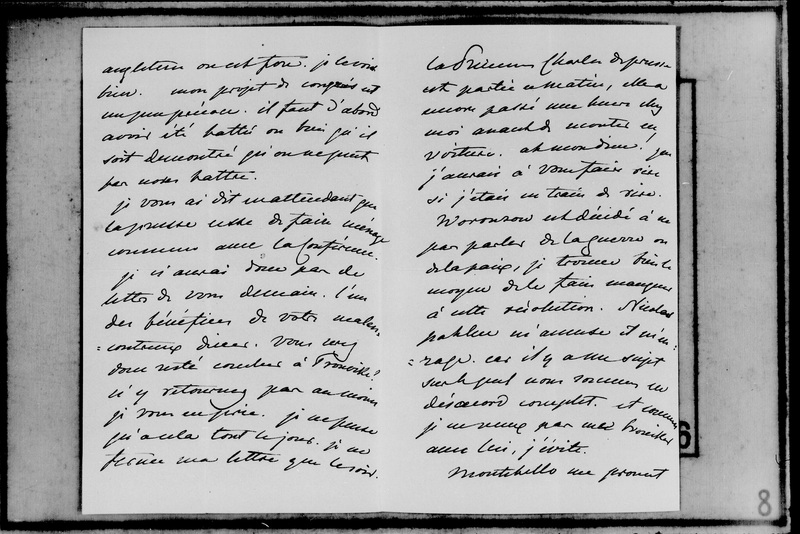 angleterre on est fou. je le vois
bien. mon projet de congrès est
un peu précoce. il faut d'abord
avoir été battu ou bien qu'il
soit demontré qu'on ne peut
pas nous battre.
je vous ai dit en attendant que
la prusse cesse de faire ménage
commun avec la Conférence.
je n'aurai donc pas de
lettre de vous demain. l'un
des bénéfices de votre malen-
=contreux diner. Vous avez
donc resté coucher à Trouville?
n'y retournez pas au moins
je vous en prie. je ne pense
qu'à cela tout le jour. je ne
ferme ma lettre que le soir.
la Princesse Charles de prusse
est partie ce matin, elle a
encore passé une heure chez
moi avant de monter en
voiture. ah mon dieu. que
j'aurais à vous faire rire
si j'étais en train de rire.
Woronzow est décidé à ne
pas parler de la guerre ou
de la paix, je trouve bien le
moyen de le faire manquer
à cette résolution. Nicolas
pahlen m'amuse et m'en-
=rage. car il y a un sujet
sur lequel nous sommes en
désaccord complet. et comme
je ne veux pas me brouiller
avec lui, j'évite.
Montebello me promet
6
8